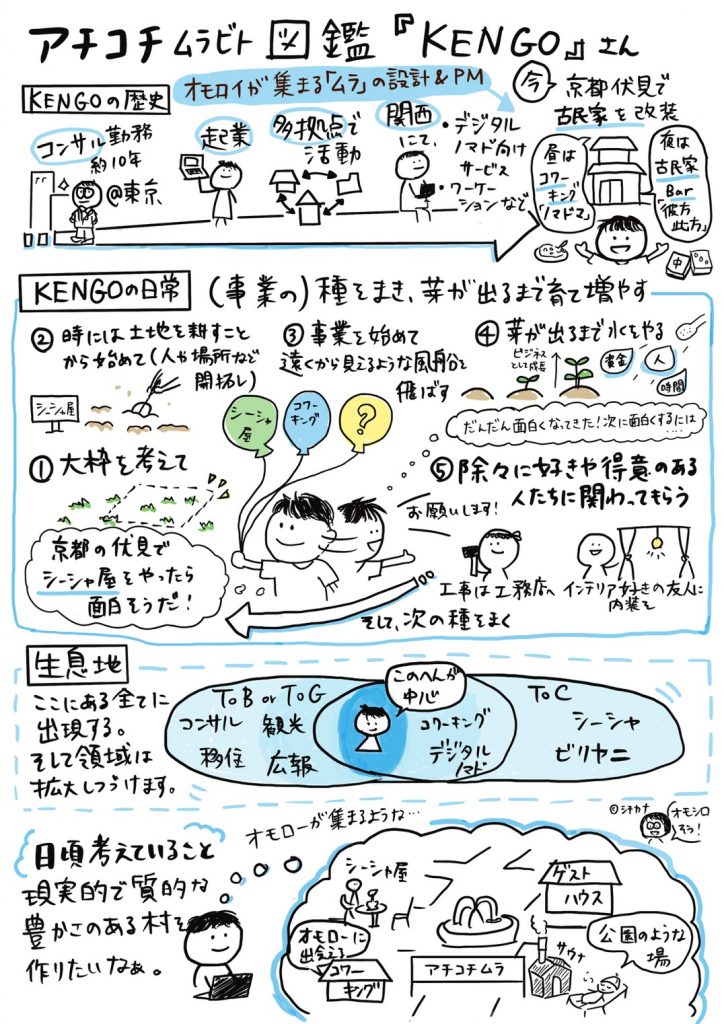 アチコチムラビト図鑑『KENGO』さん
KENGOの歴史
オモロイが集まる「ムラ」の設計&PM
コンサル勤務
約10年
@東京
起業
多拠点で
活動
関西
にて、
・デジタル
ノマド向け
サービス
・ワーケー
ションなど
今
京都伏見で
古民家を改装
昼は
コワー
キング
「ノマドマ」
夜は
古民家
Bar
「彼方
此方」
中
KENGOの日常
(事業の)種をまき、芽が出るまで育て増やす
②時には土地を耕すこと
から始めて(人や場所など
開拓し)
シーシャ屋
③事業を始めて
遠くから見えるような風船を
飛ばす
シーシャ
屋
コワー
キング
?
④芽が出るまで水をやる
ビジネス
として成長
資金
人
時間
だんだん面白くなってきた!次に面白くするには
①大枠を考えて
京都の伏見で
シーシャ屋をやったら
面白そうだ!
⑤除々に好きや得意のある
人たちに関わってもらう
お願いします!
工事は工務店へ
インテリア好きの友人に
内装を
そして、次の種をまく
生息地
ここにある全てに
出現する。
そして領域は
拡大しつづけます。
ToB or ToG
コンサル 観光
移住 広報
このへんが
中心
コワーキング
デジタル
ノマド
ToC
シーシャ
ビリヤニ
©シナカナ
オモシロ
そう!
日頃考えていること
現実的で質的な
豊かさのある村を
作りたいなぁ。
オモローが集まるような…
シーシャ屋
ゲスト
ハウス
オモローに
出会える
コワー
キング
アチコチムラ
サウナ
公園のような
場